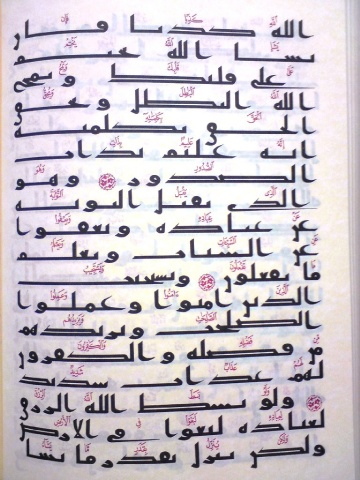 الله كذبا فإن
يشا الله يختم
على قلبك ويمح
الله البطل ويحق
الحق بكلمته
إنه عليم بذات
الصدور وهو
الذي يقبل التوبة
عن عباده ويعفوا
عن السيات ويعلم
ما تفعلون ويستجيب
الذين امنوا وعملوا
الصلحت ويزيدهم
من فضله والكفرون
لهم عذاب شديد
ولو بسط الله الرزق
لعباده لبغوا في الارض
ولكن ينزل بقدر ما يشا